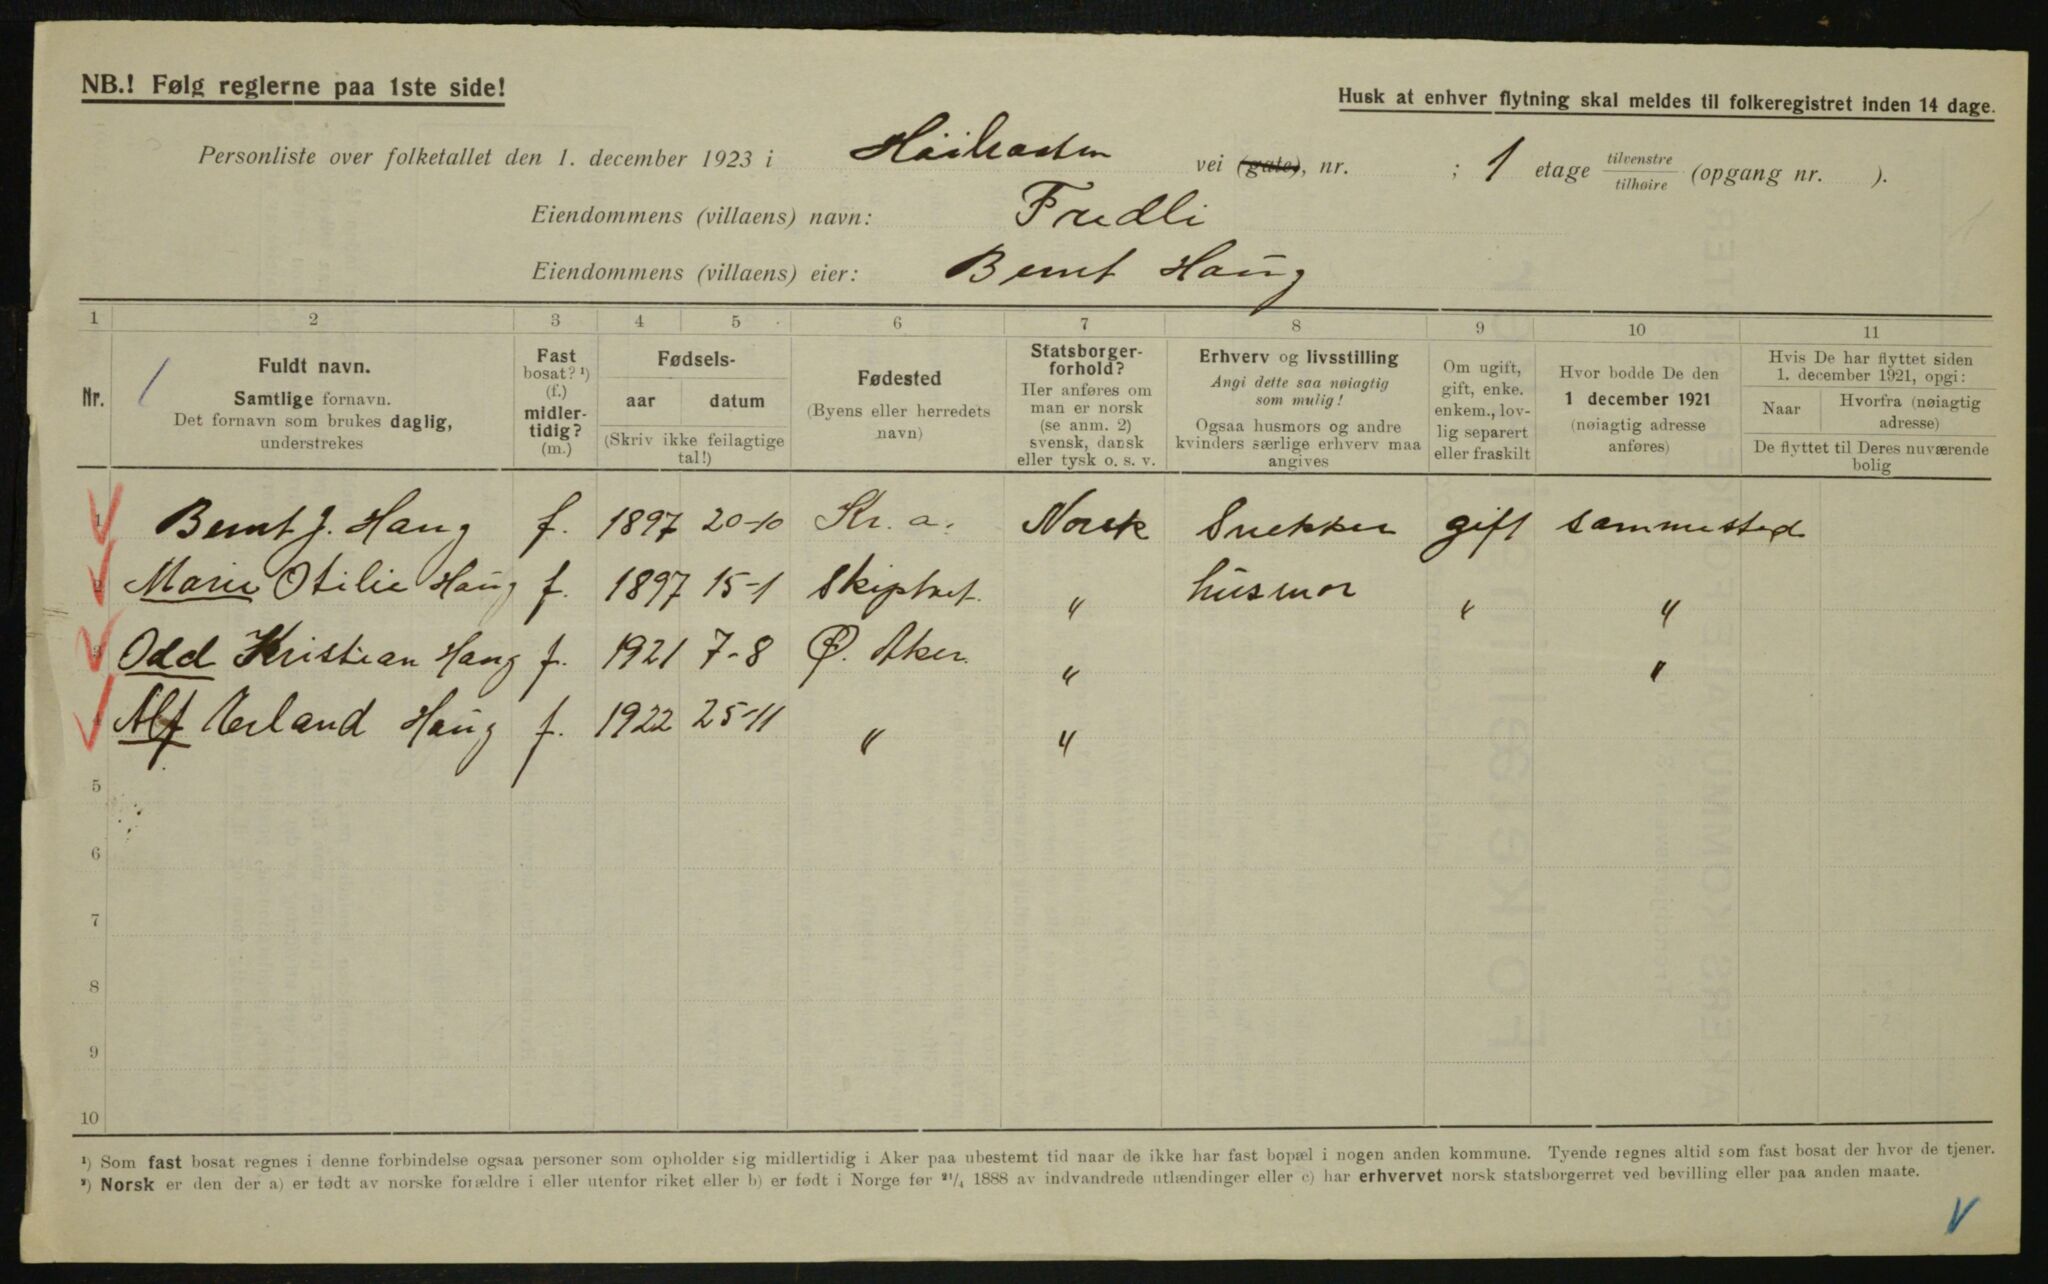 NB.! Følg reglerne paa 1ste side!
Husk at enhver flytning skal meldes til folkeregistret inden 14 dage.
Personliste over folketallet den 1. december 1923 i vei (gate), nr. ; 1 etage tilvenstre tilhøire (opgang nr. ).
Eiendommens (villaens) navn: Fredli
Eiendommens (villaens) eier: Bernt Haug
1 2 3 4 5 6 7 8 9 10 11
Nr.
Fuldt navn.
Samtlige fornavn.
Det fornavn som brukes daglig,
understrekes
Fast
bosat? ¹)
(f.)
midler-
tidig?
(m.)
Fødsels-
aar datum
(Skriv ikke feilagtige
tal!)
Fødested
(Byens eller herredets
navn)
Statsborger-
forhold?
Her anføres om
man er norsk
(se anm. 2)
svensk, dansk
eller tysk o. s. v.
Erhverv og livsstilling
Angi dette saa nøiagtig
som mulig!
Ogsaa husmors og andre
kvinders særlige erhverv maa
angives
Om ugift,
gift, enke.
enkem., lov-
lig separert
eller fraskilt
Hvor bodde De den
1 december 1921
(nøiagtig adresse
anføres)
Hvis De har flyttet siden
1. december 1921, opgi:
Naar Hvorfra (nøiagtig
adresse)
De flyttet til Deres nuværende
bolig
1 Bernt J. Haug f. 1897 20-10 Kr. a. Norsk Snekker gift sammested
2 Marie Otilie Haug f. 1897 15-1 Skiptvet. " husmor " "
3 Odd Kristian Haug f. 1921 7-8 Ø. Aker. " "
4 Alf Erland Haug f. 1922 25-11 " "
5
6
7
8
9
10
¹) Som fast bosat regnes i denne forbindelse ogsaa personer som opholder sig midlertidig i Aker paa ubestemt tid naar de ikke har fast bopæl i nogen anden kommune. Tyende regnes altid som fast bosat der hvor de tjener.
²) Norsk er den der a) er født av norske forældre i eller utenfor riket eller b) er født i Norge før ²¹/₄ 1888 av indvandrede utlændinger eller c) har erhvervet norsk statsborgerret ved bevilling eller paa anden maate.